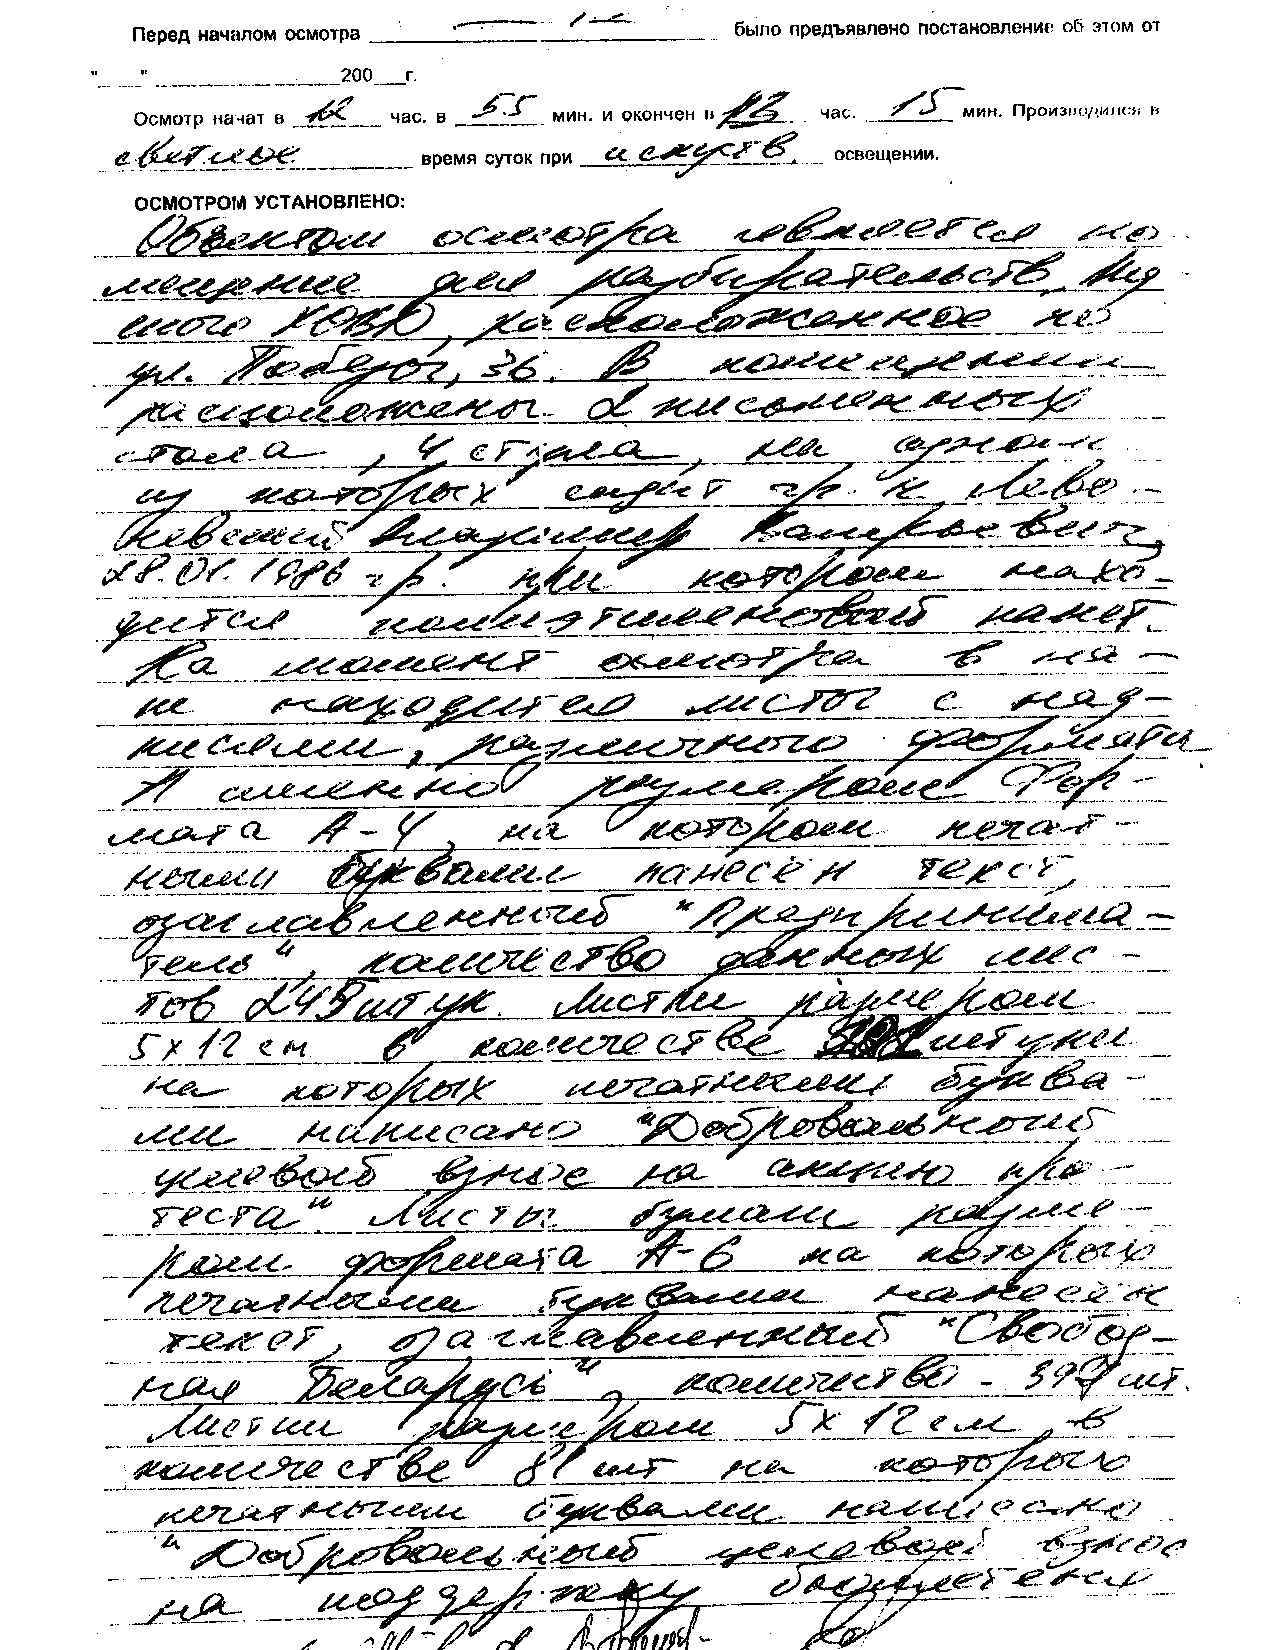 Перед началом осмотра было предъявлено постановление об этом от
" " 200 г.
Осмотр начат в 12 час. в 55 мин. и окончен в 13 час. 15 мин. Производился в
светлое время суток при искуств. освещении.
ОСМОТРОМ УСТАНОВЛЕНО:
Объектом осмотра является по
мещение для разбирательств
ного РОВД, расположенное по
ул. Победы, 36. В помещении
расположены 2 письменных
стола, 4 стула, на одном
из которых сидит гр-н Лево-
невский Владимир Валерьевич,
28.01.1986 г.р. при котором нахо-
дится полиэтиленовый пакет.
На момент осмотра в па-
ке находится листы с над-
писями, различного формата
А именно размером Фор-
мата А-4, на котором печат-
ными буквами нанесён текст,
озаглавленный "Предпринима-
тель", количество данных лис-
тов 249 штук. Листки размером
5х12 см в количестве штуки
на которых печатными буква-
ми написано "Добровольный
целевой взнос на акцию про-
теста". Листы бумаги разме-
ром формата А-6 на которых
печатными буквами нанесён
текст, озаглавленный "Свобод-
ная Беларусь", количество - шт.
Листки размером 5х12 см в
количестве 81 шт на которых
печатными буквами написано
"Добровольный целевой взнос
на поддержку бюллетеня